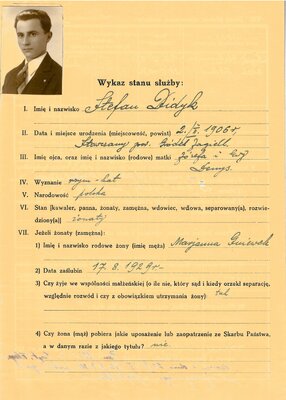 Wykaz stanu służby:
I. Imię i nazwisko Stefan Didyk
II. Data i miejsce urodzenia (miejscowość, powiat) 2. 1906 r.
Gródek Jagiell.
III. Imię ojca, oraz imię i nazwisko (rodowe) matki Józefa i
IV. Wyznanie rzym-kat
V. Narodowość polska
VI. Stan [kawaler, panna, żonaty, zamężna, wdowiec, wdowa, separowany(a), rozwie-
dziony(a)] żonaty
VII. Jeżeli żonaty (zamężna):
1) Imię i nazwisko rodowe żony (imię męża) Marjanna
2) Data zaślubin 17. 8. 1929 r.
3) Czy żyje we wspólności małżeńskiej (o ile nie, który sąd i kiedy orzekł separację,
względnie rozwód i czy z obowiązkiem utrzymania żony) tak
4) Czy żona (mąż) pobiera jakie uposażenie lub zaopatrzenie ze Skarbu Państwa,
a w danym razie z jakiego tytułu? nie